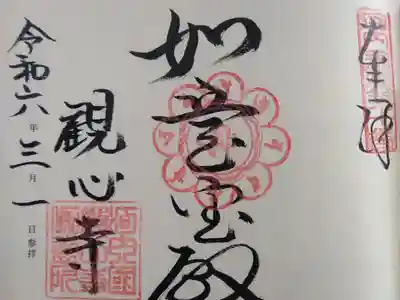 奉拝
如意宝殿
觀心寺
令和六年三月一日参拝